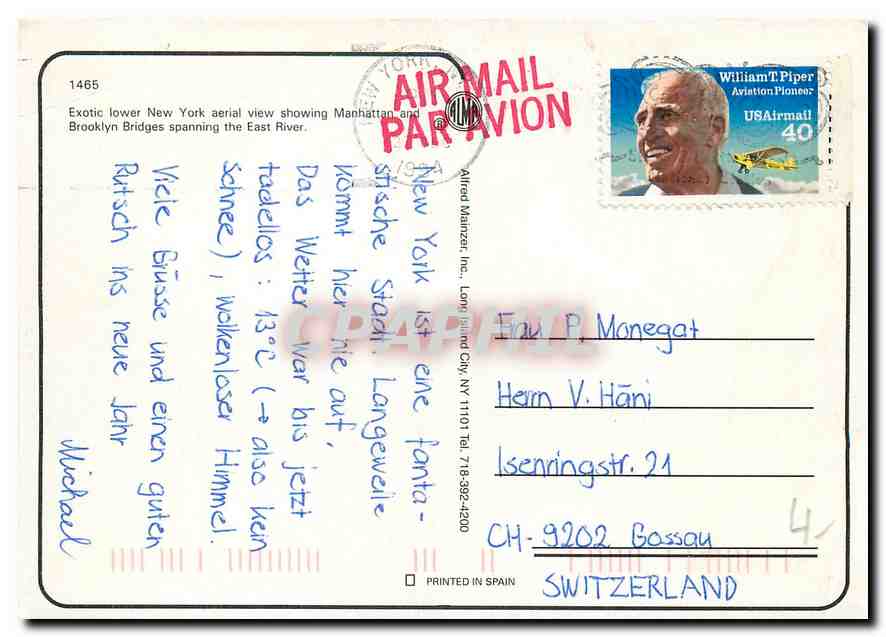 1465
Exotic lower New York aerial view showing Manhattan and
Brooklyn Bridges spanning the East River.
AIR MAIL
PAR AVION
NEW YORK, N
ALMA
William T. Piper
Aviation Pioneer
USAirmail
40
New York ist eine fanta-
stische Stadt. Langeweile
kommt hier nie auf.
Das Wetter war bis jetzt
tadellos: 13°C (→ also kein
Schnee), wolkenloser Himmel.
Viele Grüsse und einen guten
Rutsch ins neue Jahr
Michael
Alfred Mainzer, Inc., Long Island City, NY 11101 Tel. 718-392-4200
CPAPHIL
Frau P. Monegat
Herrn V. Häni
Isenringstr. 21
CH-9202 Gossau
SWITZERLAND
4.-
PRINTED IN SPAIN